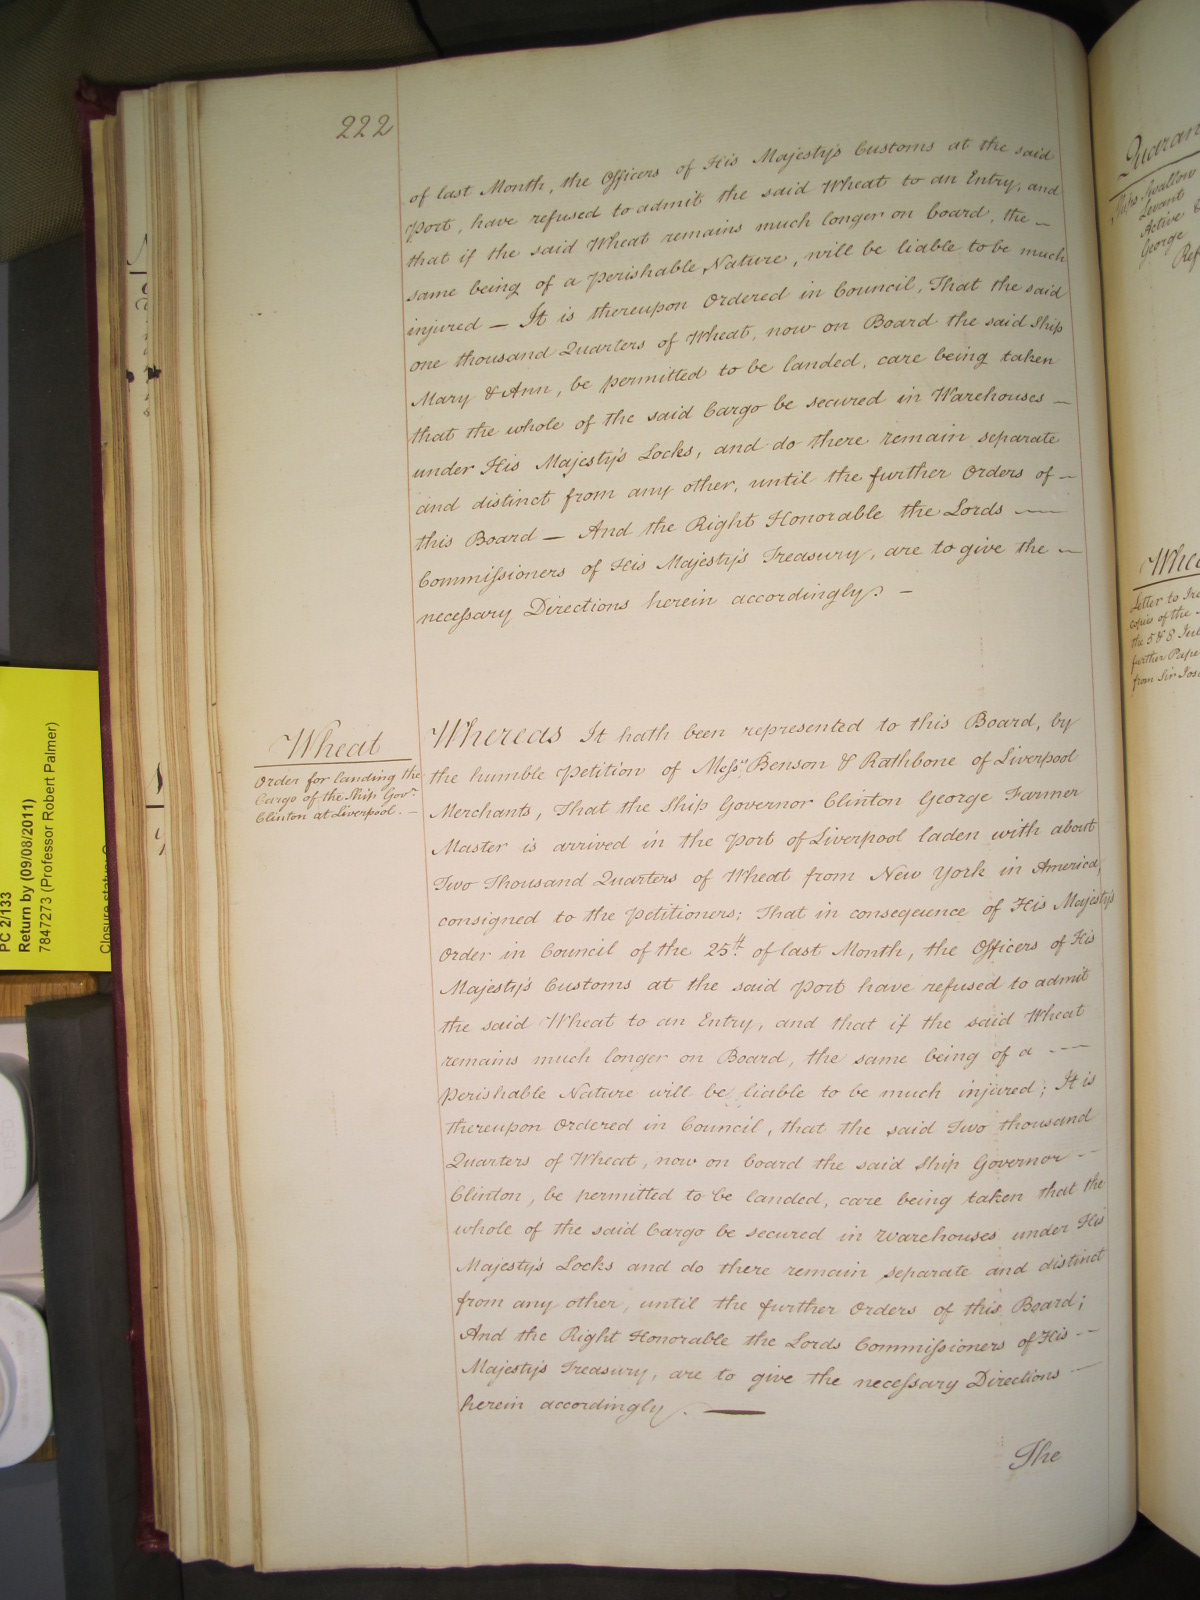 222
of last Month, the Officers of His Majesty's Customs at the said
Port, have refused to admit the said Wheat to an Entry, and
that if the said Wheat remains much longer on board, the —
same being of a Perishable Nature, will be liable to be much
injured — It is thereupon Ordered in Council, That the said
one thousand Quarters of Wheat, now on Board the said Ship
Mary & Ann, be permitted to be landed, care being taken
that the whole of the said Cargo be secured in Warehouses —
under His Majesty's Locks, and do there remain separate
and distinct from any other, until the further Orders of —
this Board — And the Right Honorable the Lords —
Commissioners of His Majesty's Treasury, are to give the —
necessary Directions herein accordingly. —
Wheat
Order for landing the
Cargo of the Ship Govr.
Clinton at Liverpool. —
Whereas It hath been represented to this Board, by
the humble Petition of Messrs. Benson & Rathbone of Liverpool
Merchants, That the Ship Governor Clinton George Farmer
Master is arrived in the Port of Liverpool laden with about
Two Thousand Quarters of Wheat from New York in America,
consigned to the Petitioners; That in consequence of His Majesty's
Order in Council of the 25th. of last Month, the Officers of His
Majesty's Customs at the said Port have refused to admit
the said Wheat to an Entry, and that if the said Wheat
remains much longer on Board, the same being of a —
Perishable Nature will be liable to be much injured; It is
thereupon Ordered in Council, that the said Two thousand
Quarters of Wheat, now on board the said Ship Governor —
Clinton, be permitted to be landed, care being taken that the
whole of the said Cargo be secured in Warehouses under His
Majesty's Locks and do there remain separate and distinct
from any other, until the further Orders of this Board;
And the Right Honorable the Lords Commissioners of His —
Majesty's Treasury, are to give the necessary Directions —
herein accordingly. —
The
PC 2/133
Return by (09/08/2011)
7847273 (Professor Robert Palmer)
Closure status:
Ships Swallow
Levant
Active &
George
Letter to
copies of the
the 5 & 8
further
from Sir